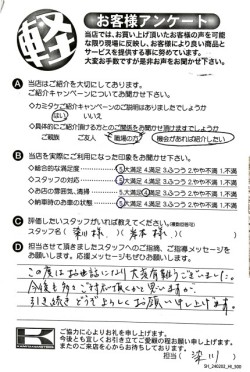 軽
お客様アンケート
当店では、お買い上げ頂いたお客様の声を可能
な限り現場に反映し、お客様により良い商品と
サービスを提供する事に努めています。
大変お手数ですが是非お声をお聞かせ下さい。
A 当店はご紹介を大切にしております。
ご紹介キャンペーンについてお聞かせ下さい。
◇カミタケご紹介キャンペーンのご説明はありましたでしょうか
はい いいえ
◇具体的にご紹介頂ける方とのご関係をお聞かせ頂けますでしょうか
ご親族 ご友人 職場の方 機会があれば紹介したい
B 当店を実際にご利用になった印象をお聞かせ下さい。
◇総合的な満足度 5.大満足 4.満足 3.ふつう 2.やや不満 1.不満
◇スタッフの対応 5.大満足 4.満足 3.ふつう 2.やや不満 1.不満
◇お店の雰囲気、清掃 5.大満足 4.満足 3.ふつう 2.やや不満 1.不満
◇納車時のお車の状態 5.大満足 4.満足 3.ふつう 2.やや不満 1.不満
C 評価したいスタッフがいれば教えてください。(複数回答可)
スタッフ名( 梁川 様)( 岩本 様)
D 担当させて頂きましたスタッフへのご指摘、ご指導メッセージを
お願いします。応援メッセージもぜひお願いします。
この度はお世話になり大変有難うございました。
今後も多々ご対応頂くかと思いますが、
引き続きどうぞよろしくお願い申し上げます。
ご協力に心よりお礼を申し上げます。
今後とも宜しくお引き立てご愛顧の程お願い申し上げます。
またのご来店を心からお待ちしております。
担当( 梁川 )